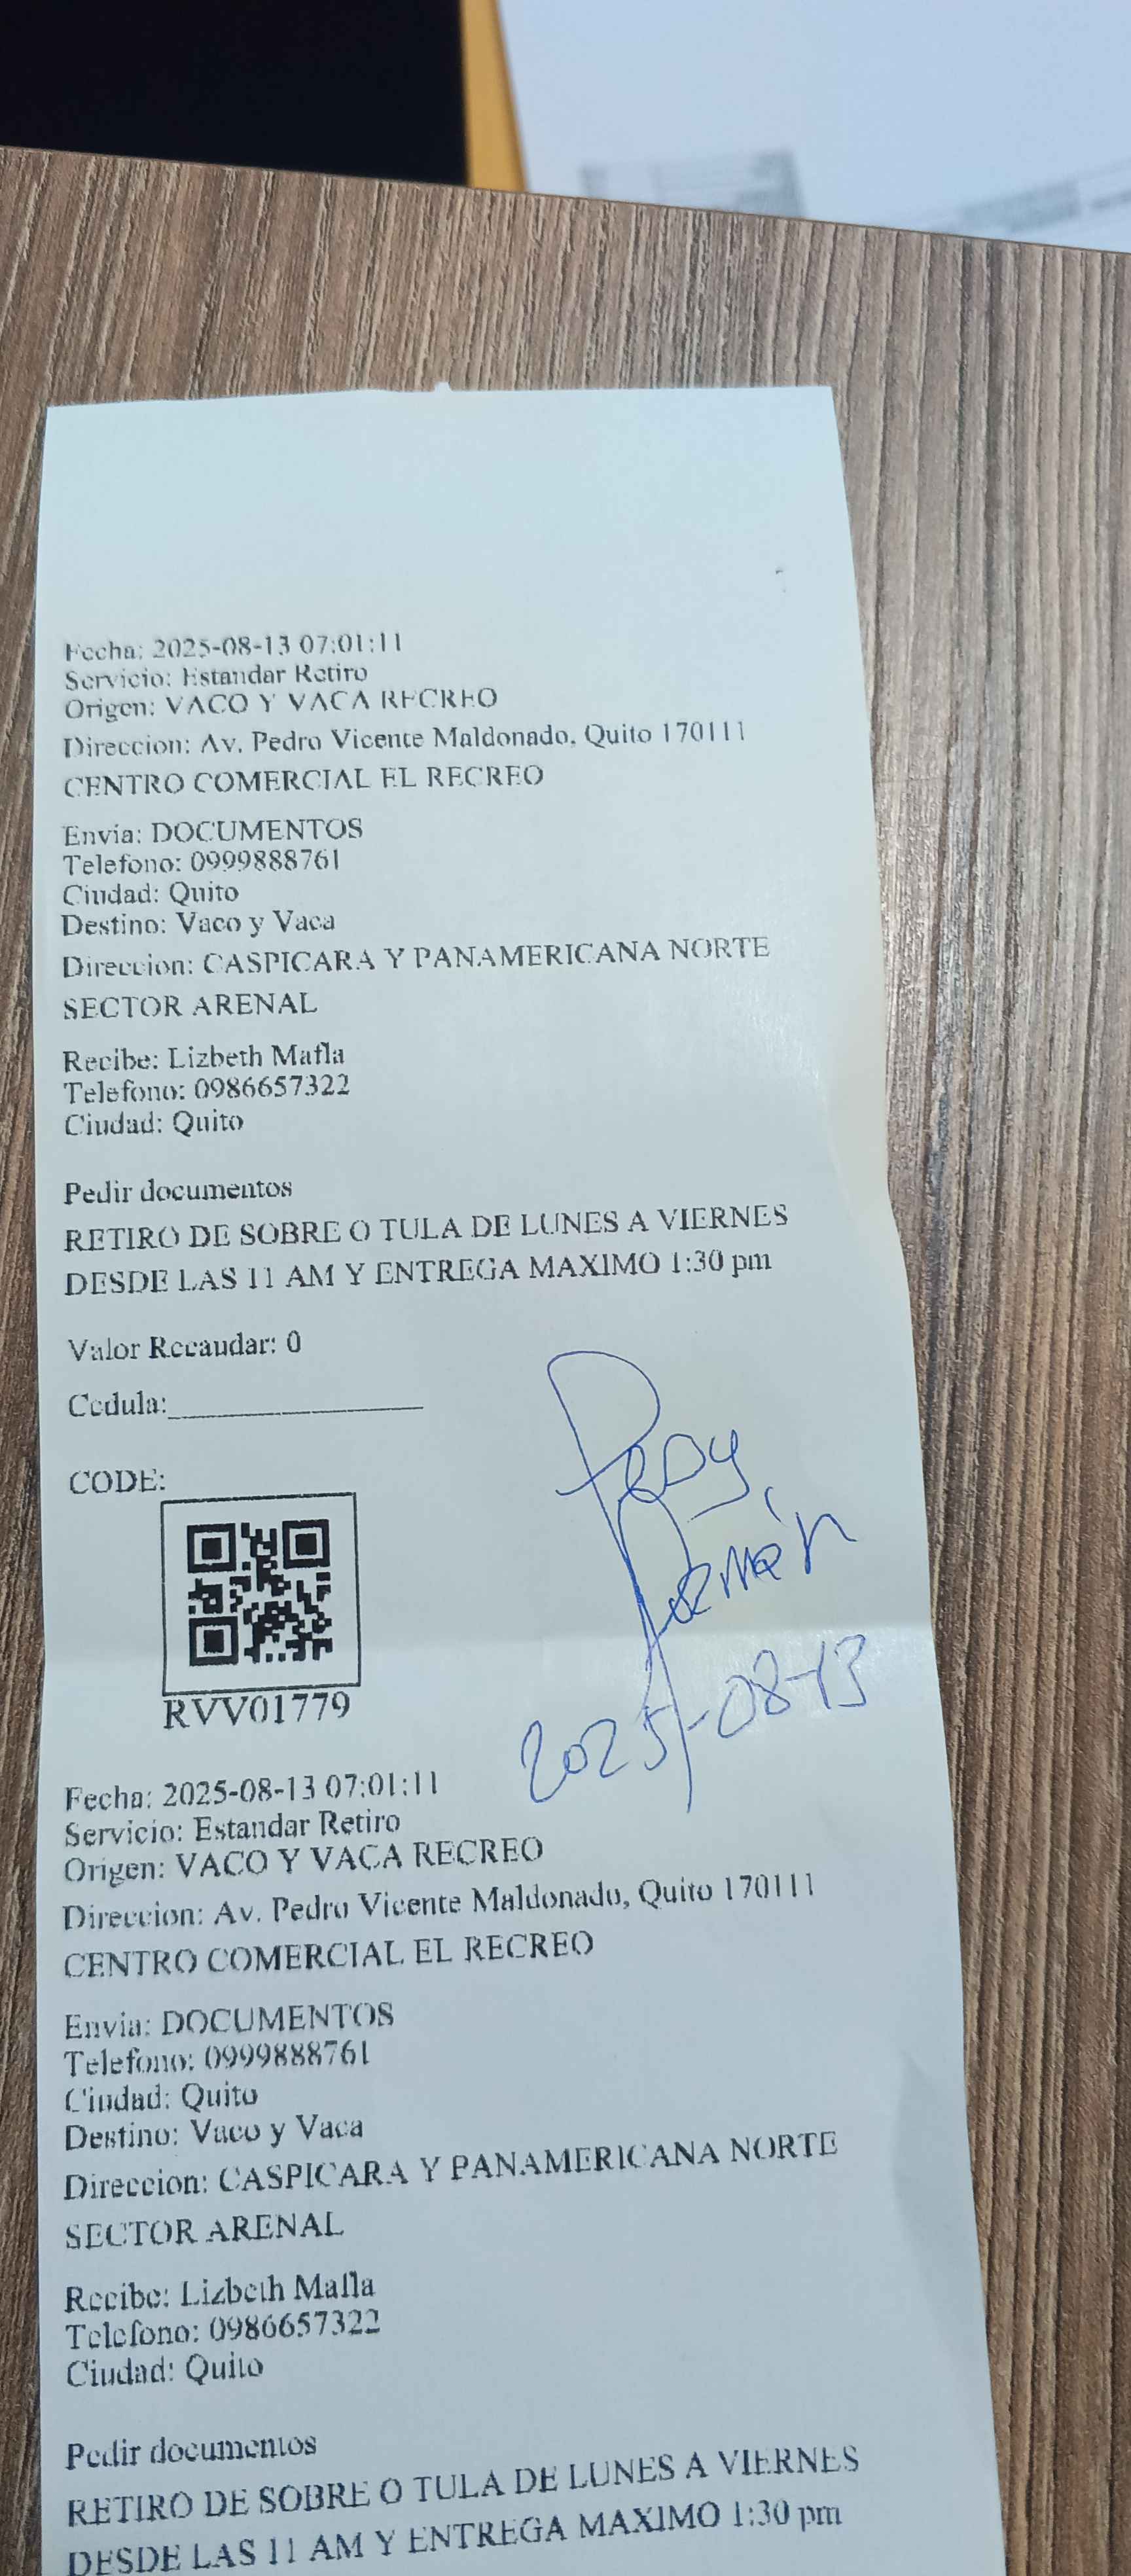 Fecha: 2025-08-13 07:01:11
Servicio: Estandar Retiro
Origen: VACO Y VACA RECREO
Direccion: Av. Pedro Vicente Maldonado, Quito 170111
CENTRO COMERCIAL EL RECREO
Envia: DOCUMENTOS
Telefono: 0999888761
Ciudad: Quito
Destino: Vaco y Vaca
Direccion: CASPICARA Y PANAMERICANA NORTE
SECTOR ARENAL
Recibe: Lizbeth Mafla
Telefono: 0986657322
Ciudad: Quito
Pedir documentos
RETIRO DE SOBRE O TULA DE LUNES A VIERNES
DESDE LAS 11 AM Y ENTREGA MAXIMO 1:30 pm
Valor Recaudar: 0
Cedula:
CODE:
RVV01779
2025-08-13
Fecha: 2025-08-13 07:01:11
Servicio: Estandar Retiro
Origen: VACO Y VACA RECREO
Direccion: Av. Pedro Vicente Maldonado, Quito 170111
CENTRO COMERCIAL EL RECREO
Envia: DOCUMENTOS
Telefono: 0999888761
Ciudad: Quito
Destino: Vaco y Vaca
Direccion: CASPICARA Y PANAMERICANA NORTE
SECTOR ARENAL
Recibe: Lizbeth Mafla
Telefono: 0986657322
Ciudad: Quito
Pedir documentos
RETIRO DE SOBRE O TULA DE LUNES A VIERNES
DESDE LAS 11 AM Y ENTREGA MAXIMO 1:30 pm